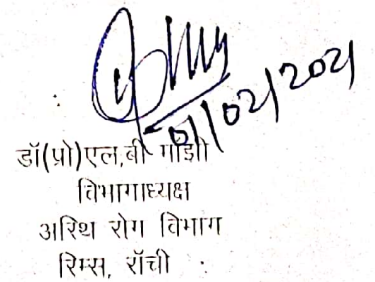 01/02/2021
डॉ(प्रो)एल,बी माझी
विभागाध्यक्ष
अस्थि रोग विभाग
रिम्स, राँची